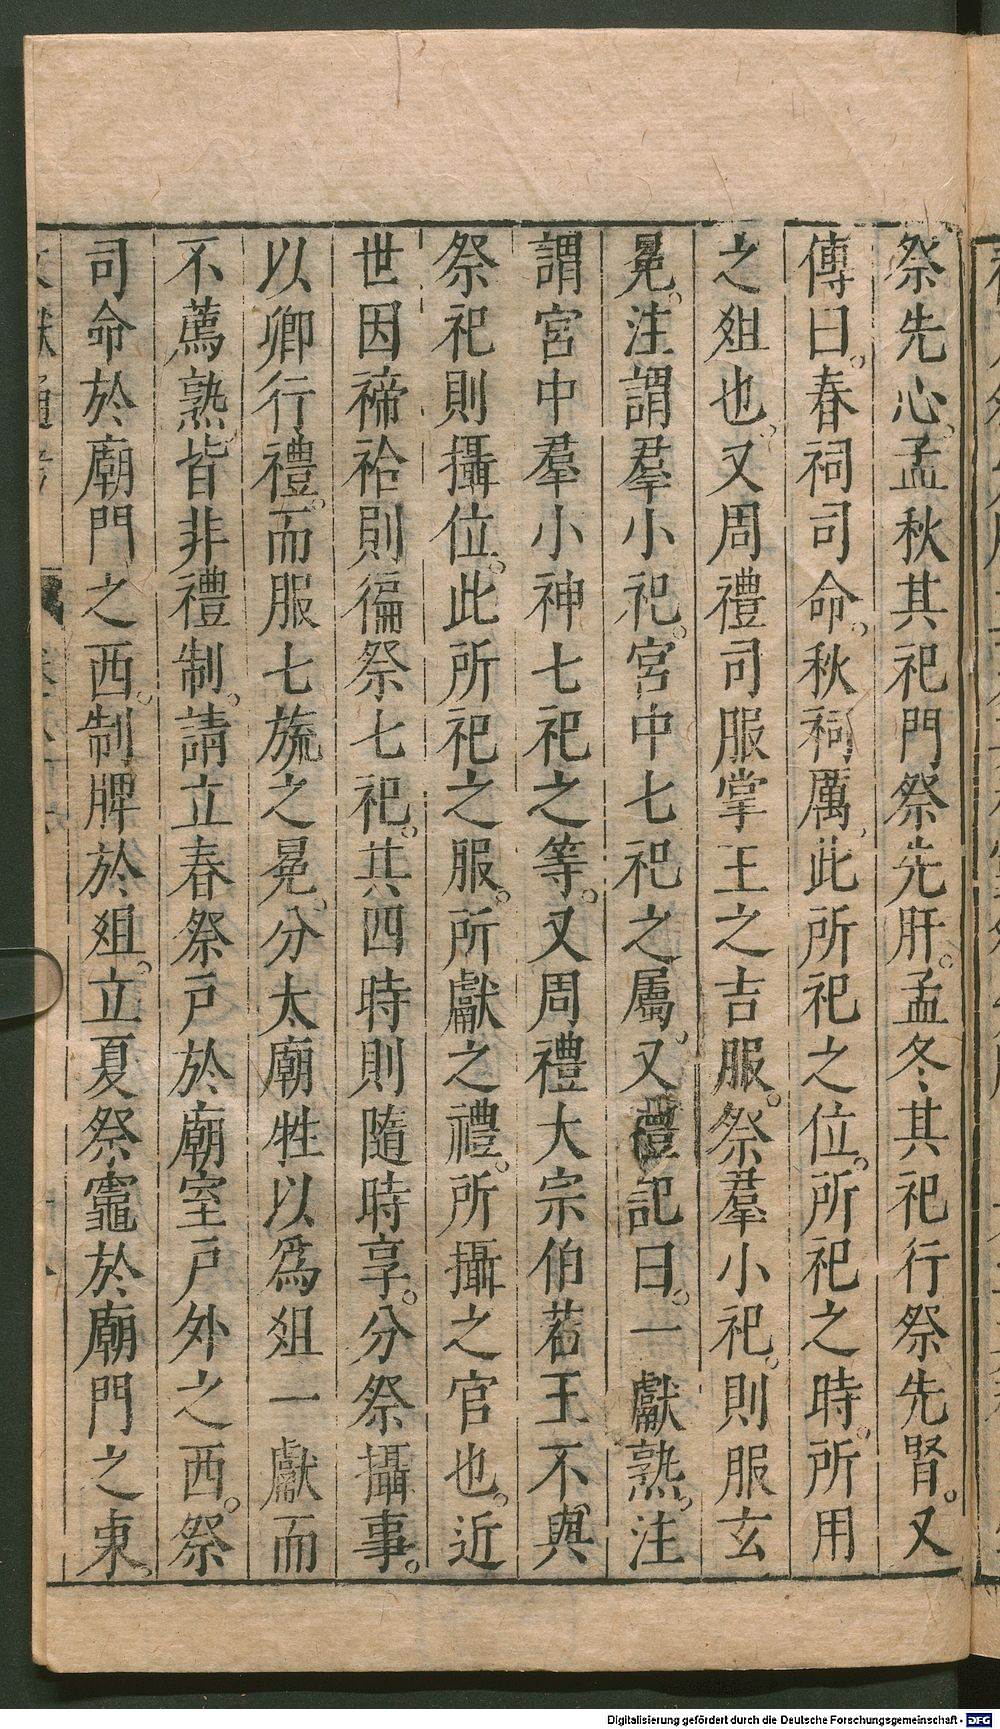 祭先心。孟秋其祀門祭先肝。孟冬其祀行祭先腎。又
傳曰。春祠司命。秋祠厲。此所祀之位。所祀之時。所用
之俎也。又周禮司服掌王之吉服。祭羣小祀。則服玄
冕。注謂羣小祀。宮中七祀之屬。又禮記曰。一獻熟。注
謂宮中羣小神七祀之等。又周禮大宗伯若王不與
祭祀則攝位。此所祀之服。所獻之禮。所攝之官也。近
世因禘祫則徧祭七祀。其四時則隨時享。分祭攝事。
以卿行禮。而服七旒之冕。分太廟牲以爲俎一獻而
不薦熟。皆非禮制。請立春祭戸於廟室戸外之西。祭
司命於廟門之西。制脾於俎。立夏祭竈於廟門之東。
Digitalisierung gefördert durch die Deutsche Forschungsgemeinschaft - DFG